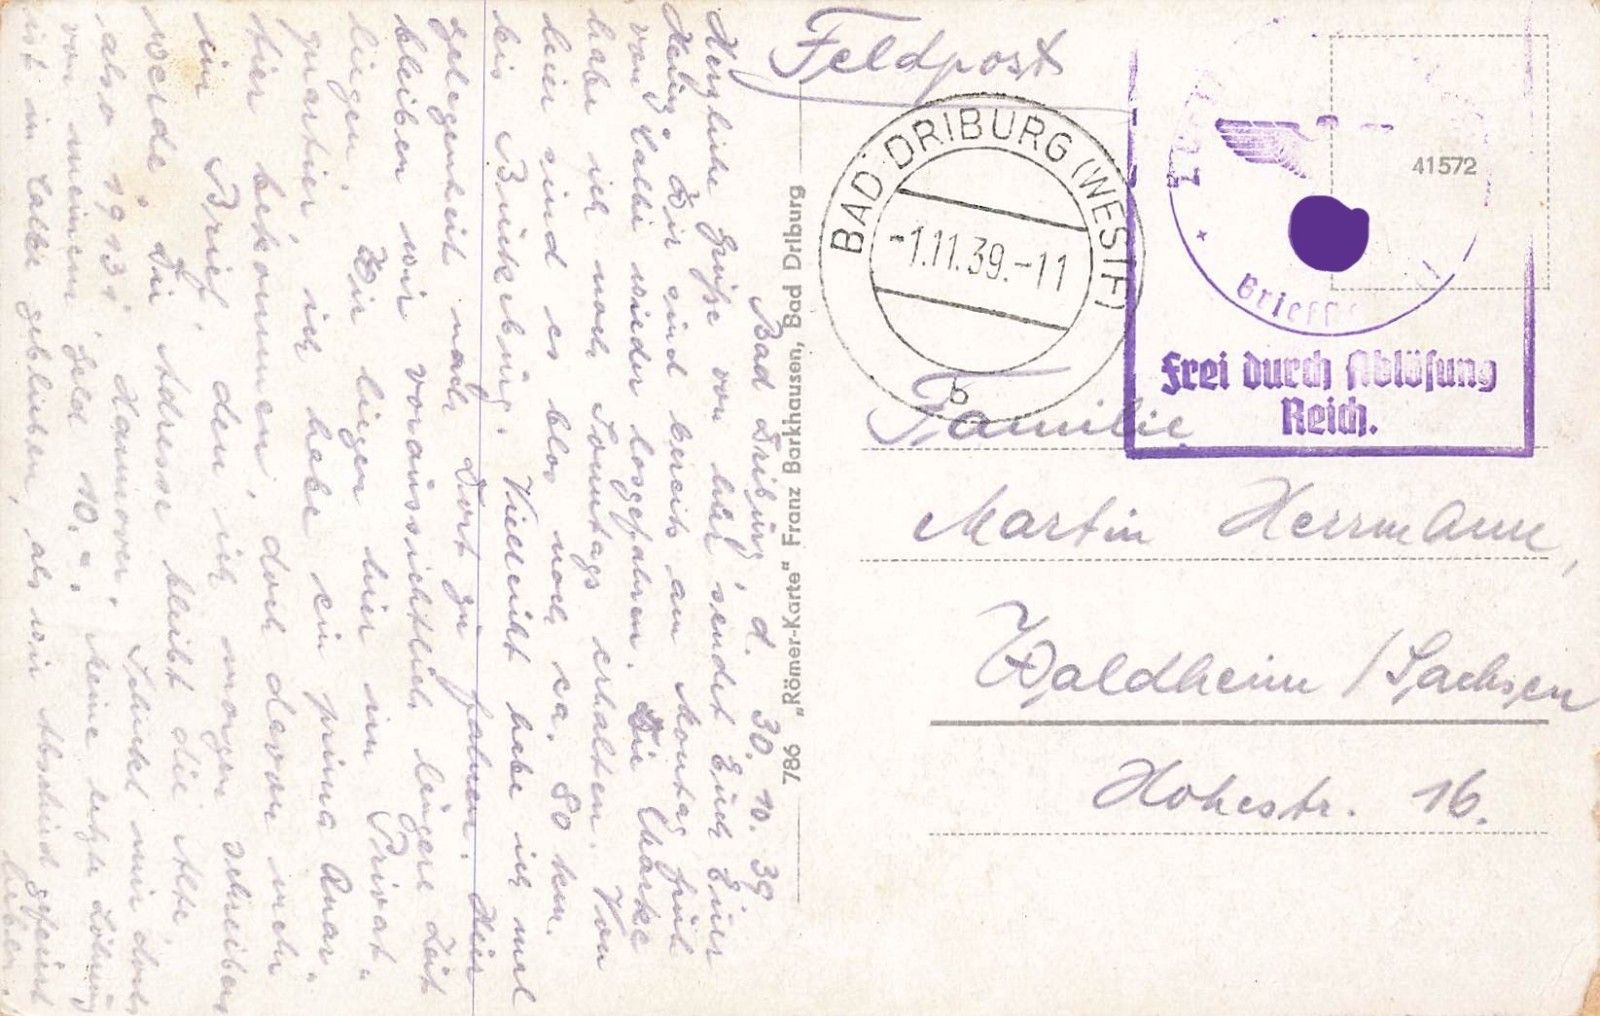 Feldpost
BAD DRIBURG (WESTF)
-1.11.39.-11
b
41572
Briefst
Frei durch Ablösung
Reich.
Familie
Martin Herrmann,
Waldheim / Sachsen
Hohestr. 16.
786 "Römer-Karte" Franz Barkhausen, Bad Driburg
Bad Driburg, d. 30. 10. 39
Herzliche Grüße von hier sendet Euch Euer
Heinz. Wir sind bereits am Montag früh
von Calbe wieder losgefahren. Die Marke
habe ich noch Sonntags erhalten. Von
hier sind es blos noch ca. 80 km.
bis Bückeburg. Vielleicht habe ich mal
gelegenheit nach dort zu fahren. Hier
bleiben wir voraussichtlich längere Zeit
liegen. Wir liegen hier im Privat-
quartier, ich habe ein prima Quar-
tier bekommen, doch davon mehr
im Brief, den ich morgen schreiben
werde. Die Adresse bleibt die alte
also 19931 Hannover. Schickt mir doch
von meinem Geld 10.- Meine letzte Löhnung
ist in Calbe geblieben, als wir Abschied gefeiert
haben.